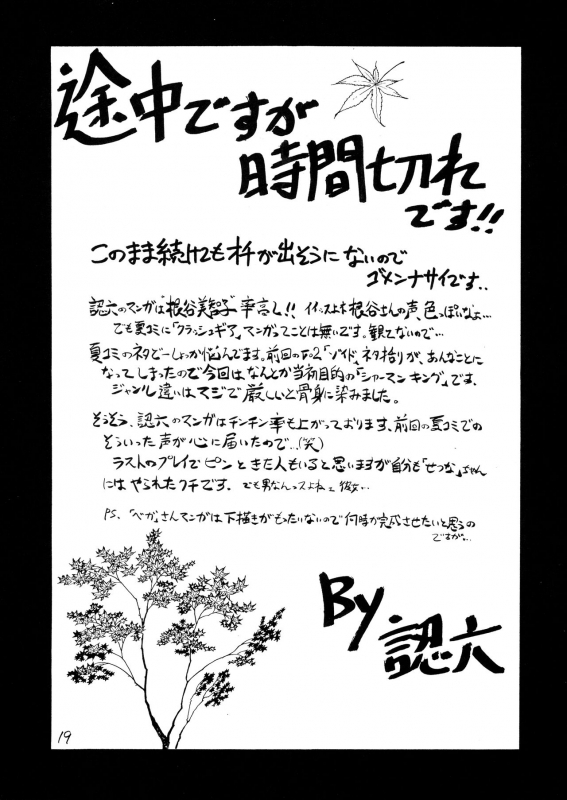 途中ですが
時間切れ
です!!
このまま続けてもオチが出そうにないので
ゴメンナサイです..
認六のマンガは"根谷美智子"率高し!! イイっスよネ根谷さんの声、色っぽいなぁ…
でも夏コミに「フラッシュギア」マンガってことは無いです。観てないので…
夏コミのネタどーしょっか悩んでます。前回の「ゾイド」ネタ拾りが、あんなことに
なってしまったので今回は、なんとか当初目的の「シャーマンキング」です、
ジャンル違いはマジで厳しいと骨身に染みました。
そうそう、認六のマンガはチンチン率も上がっております、前回の夏コミでの
そういった声が心に届いたので…(笑)
ラストのプレイでピンときた人もいると思いますが自分も「せつな」ちゃん
にはやられたクチです. でも男なんっスよねェ彼女…
PS. 「べが」さんマンガは下描きがもったいないので何時か完成させたいと思うの
ですが…
By 認六
19